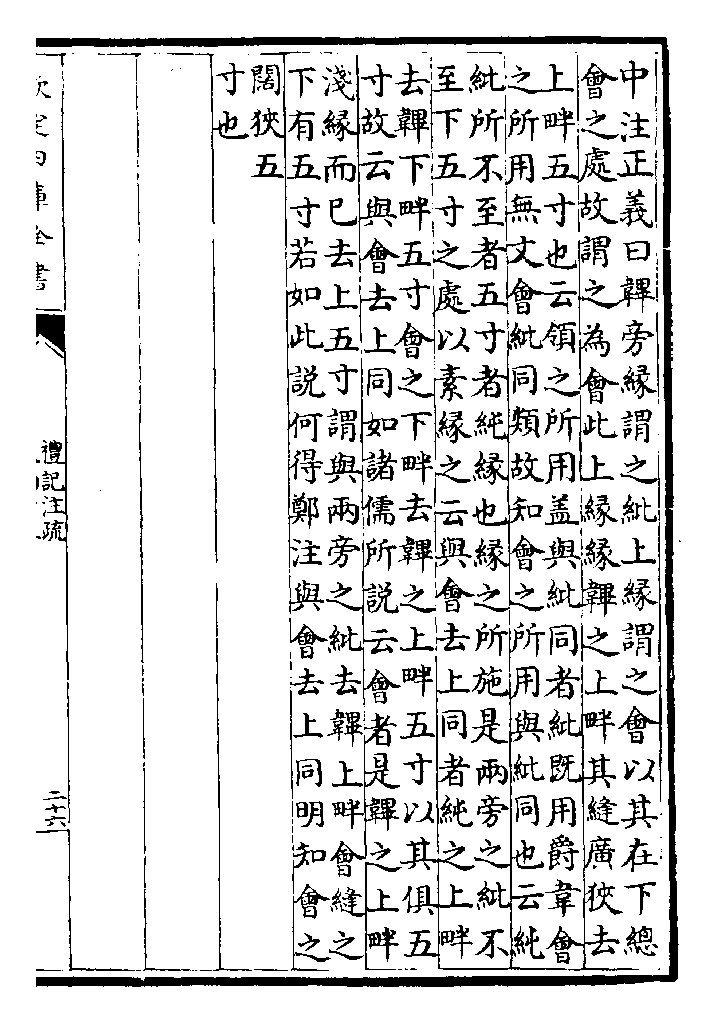 中注正義曰韠旁縁謂之紕上縁謂之會以其在下總
會之處故謂之為會此上縁縁韠之上畔其縫廣狹去
上畔五寸也云領之所用盖與紕同者紕既用爵韋會
之所用無文會紕同類故知會之所用與紕同也云純
紕所不至者五寸者純縁也縁之所施是兩旁之紕不
至下五寸之處以素縁之云與會去上同者純之上畔
去韠下畔五寸會之下畔去韠之上畔五寸以其俱五
寸故云與會去上同如諸儒所説云會者是韠之上畔
淺縁而巳去上五寸謂與兩旁之紕去韠上畔會縫之
下有五寸若如此説何得鄭注與會去上同明知會之
闊狹五
寸也
欽定四庫全書
禮記注疏
二十六